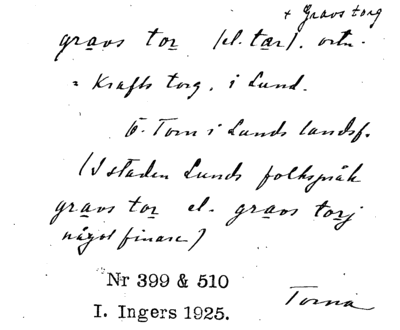 + Gravs torg
gravs tor (el. tær). ortn.
= Krafts torg, i Lund.
Ö. Torn i Lunds landsf.
(I staden Lunds folkspråk
gravs tor el. gravs torj
något finare)
Nr 399 & 510
Torna
I. Ingers 1925.